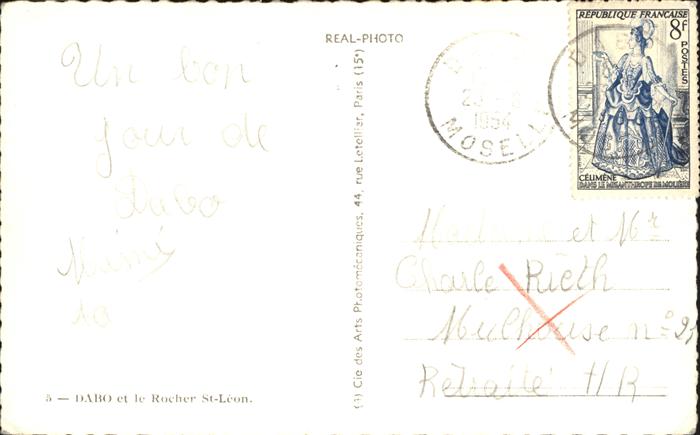 REAL-PHOTO
Un bon
jour de
Dabo
Mimi
5 — DABO et le Rocher St-Léon.
(3) Cie des Arts Photomécaniques, 44, rue Letellier, Paris (15e)
1954
MOSELLE
RÉPUBLIQUE FRANÇAISE
8f
POSTES
CÉLIMÈNE
DANS LE MISANTHROPE DE MOLIÈRE
Madame et Mr
Charle Rieth
Mulhouse no
Retraité H/R